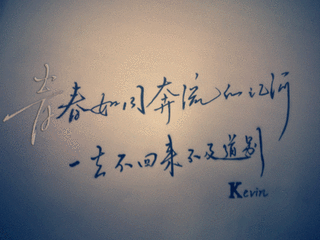 青春如同奔流的江河
一去不回来不及道别
Kevin